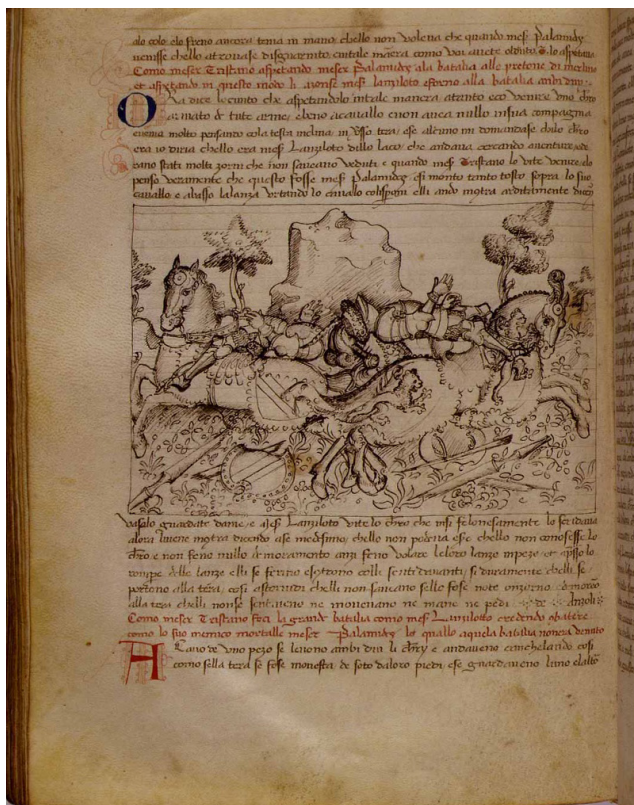 alo colo elo freno ancora tenia in mano, chello non voleua che quando mes Palamides
venisse chello atrouase disgarnito, entale mãera como voi auete oldito. E lo aspetaua
Como meser Tristano aspetando meser Palamides ala batalia alle pretone di merlino
et aspetando in questo modo li auense mes lanziloto esforno alla batalia ambi dui
Ora dice lo conto che aspetandolo intale manera atanto eco venire vno chr̃o
armato de tute arme, e bene acauallo e non auea nullo in sua compagnia
e uenia molto pensando cola testa inclina in verso tera, ese alcuno mi domandase chilo chr̃o
era io diria chello era mes Lanziloto dello laco, che andaua cercando auenture, ed
rano stati molti zorni che non saueano veduti e quando mes Tristano lo vite venire, elo
penso veramente che questo fosse mes Palamides, esi monto tanto tosto sopra lo suo
cauallo e abasso la lanza vrtando lo cauallo coli speroni elli ando incõtra arditamente dicẽ
vasalo guardate dame, e mes Lanziloto vite lo chr̃o che insi felonesamente lo feridaua
alora li uene incõtra dicendo ase medesimo, chello non podeua ese chello non conosesse lo
chr̃o e non feno nullo demoramento anzi feno volare le loro lanze in pezo, et apresso lo
rompe delle lanze elli se ferino e si dono colli scuti dauanti, si duramente chelli se
portono alla tera, cosi astorditi chelli non saueano selle fose note onzorno, e demoro
alla tera chelli non se sentaueno ne moueuano ne mane ne pedi
Como meser Tristano feci la grande batalia como mes Lanziloto credendo abatere
como lo suo inemico mortalle meser Palamides lo quallo aquela batalia non era venuto
A Cauo de vno pezo se leuono ambi dui li chr̃y e andaueno canchelando cosi
como sella tera se fose mouesta de soto daloro piedi, ese guardaueno luno elaltõ